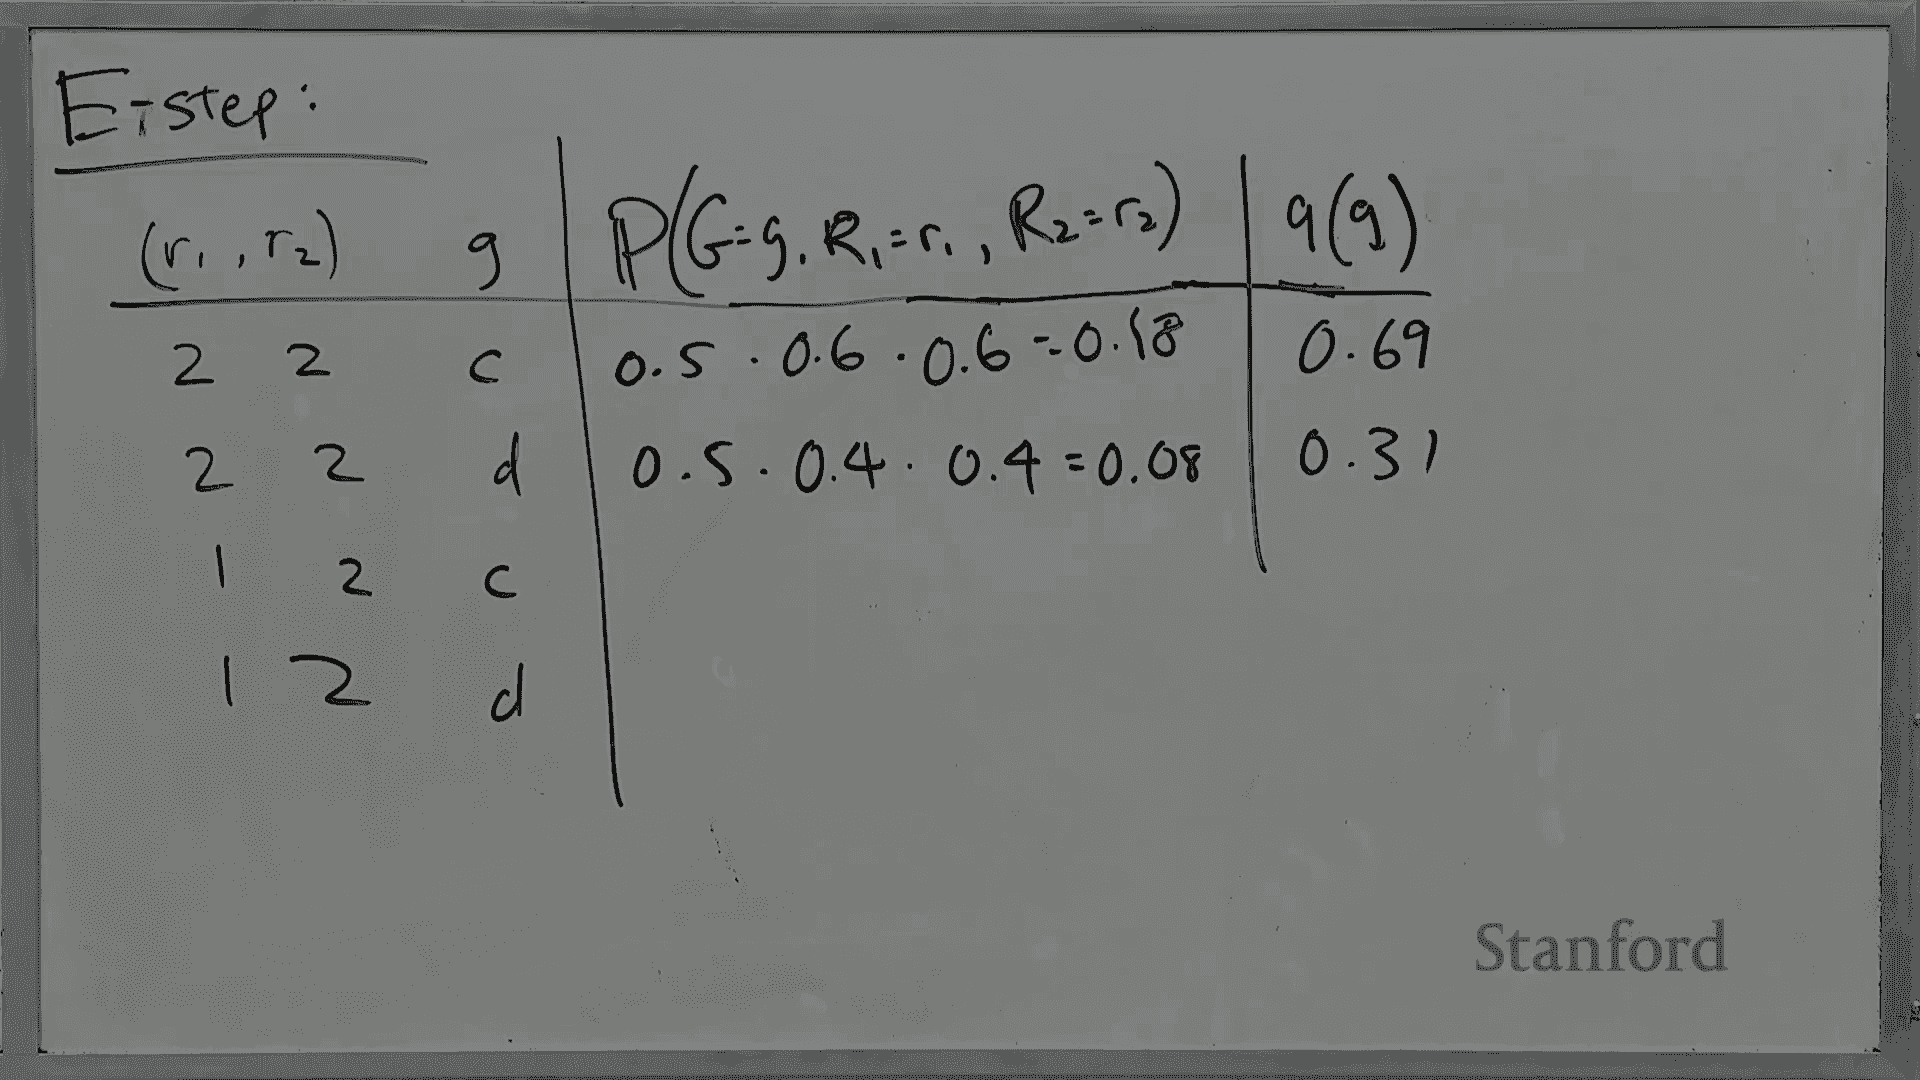 E-step:
(r₁, r₂) g P(G=g, R₁=r₁, R₂=r₂) q(g)
2 2 c 0.5 · 0.6 · 0.6 = 0.18 0.69
2 2 d 0.5 · 0.4 · 0.4 = 0.08 0.31
1 2 c
1 2 d
Stanford